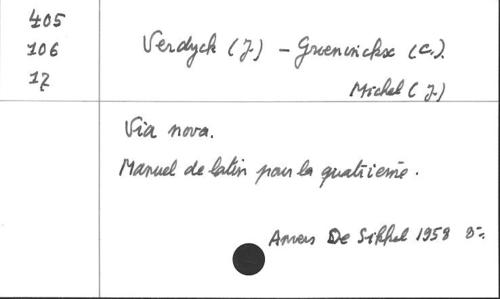 405
106
17
Verdyck (J.) - Groeninckx (C.).
Michel (J.)
Via nova.
Manuel de latin pour la quatrième.
Anvers De Sikkel 1958 8-.